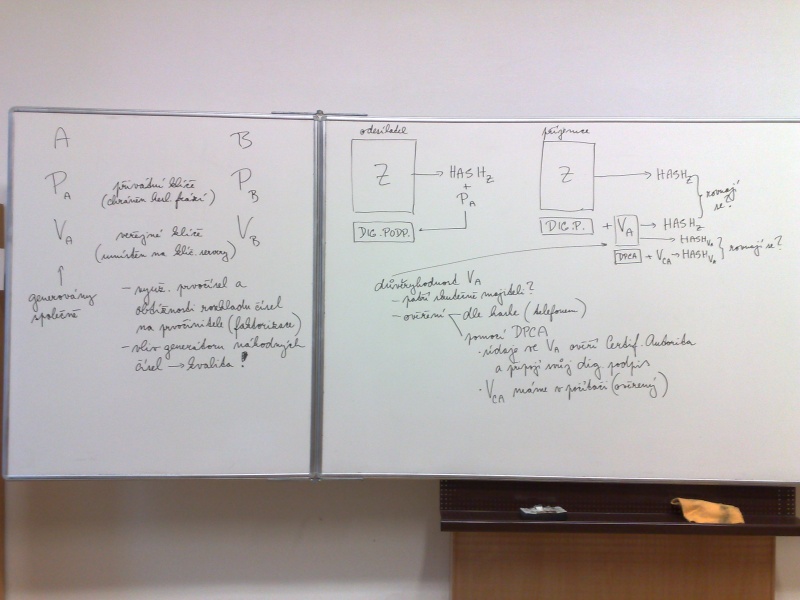 A B
P_A privátní klíče P_B
(chráněn hesl. frází)
V_A veřejné klíče V_B
(umístěn na klíč. servery)
↑
generovány
společně
- využ. prvočísel a
obtížnosti rozkladu čísel
na prvočinitele (faktorizace)
- vliv generátoru náhodných
čísel → kvalita!
odesílatel
Z → HASH_Z
+
P_A
DIG. PODP.
příjemce
Z → HASH_Z
rovnají
se?
DIG. P. + V_A → HASH_Z
→ HASH_VA
DPCA + V_CA → HASH_VA
rovnají se?
důvěryhodnost V_A
- patří skutečně majiteli?
- ověření
dle hesla (telefonem)
pomocí DPCA
· údaje ve V_A ověří Certif. Autorita
a připojí svůj dig. podpis
· V_CA máme v počítači (ověřený)